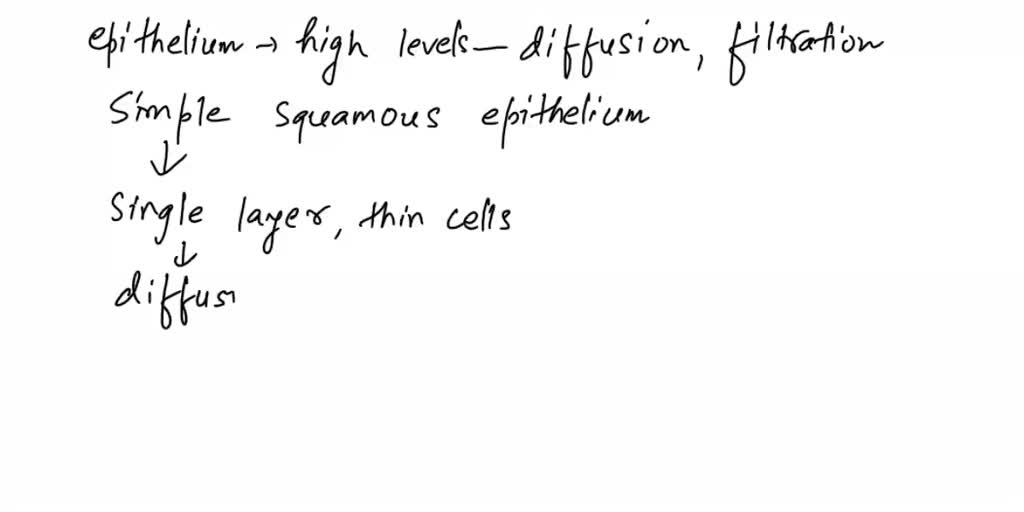 epithelium → high levels — diffusion, filtration
Simple squamous epithelium
↓
Single layer, thin cells
↓
diffusi